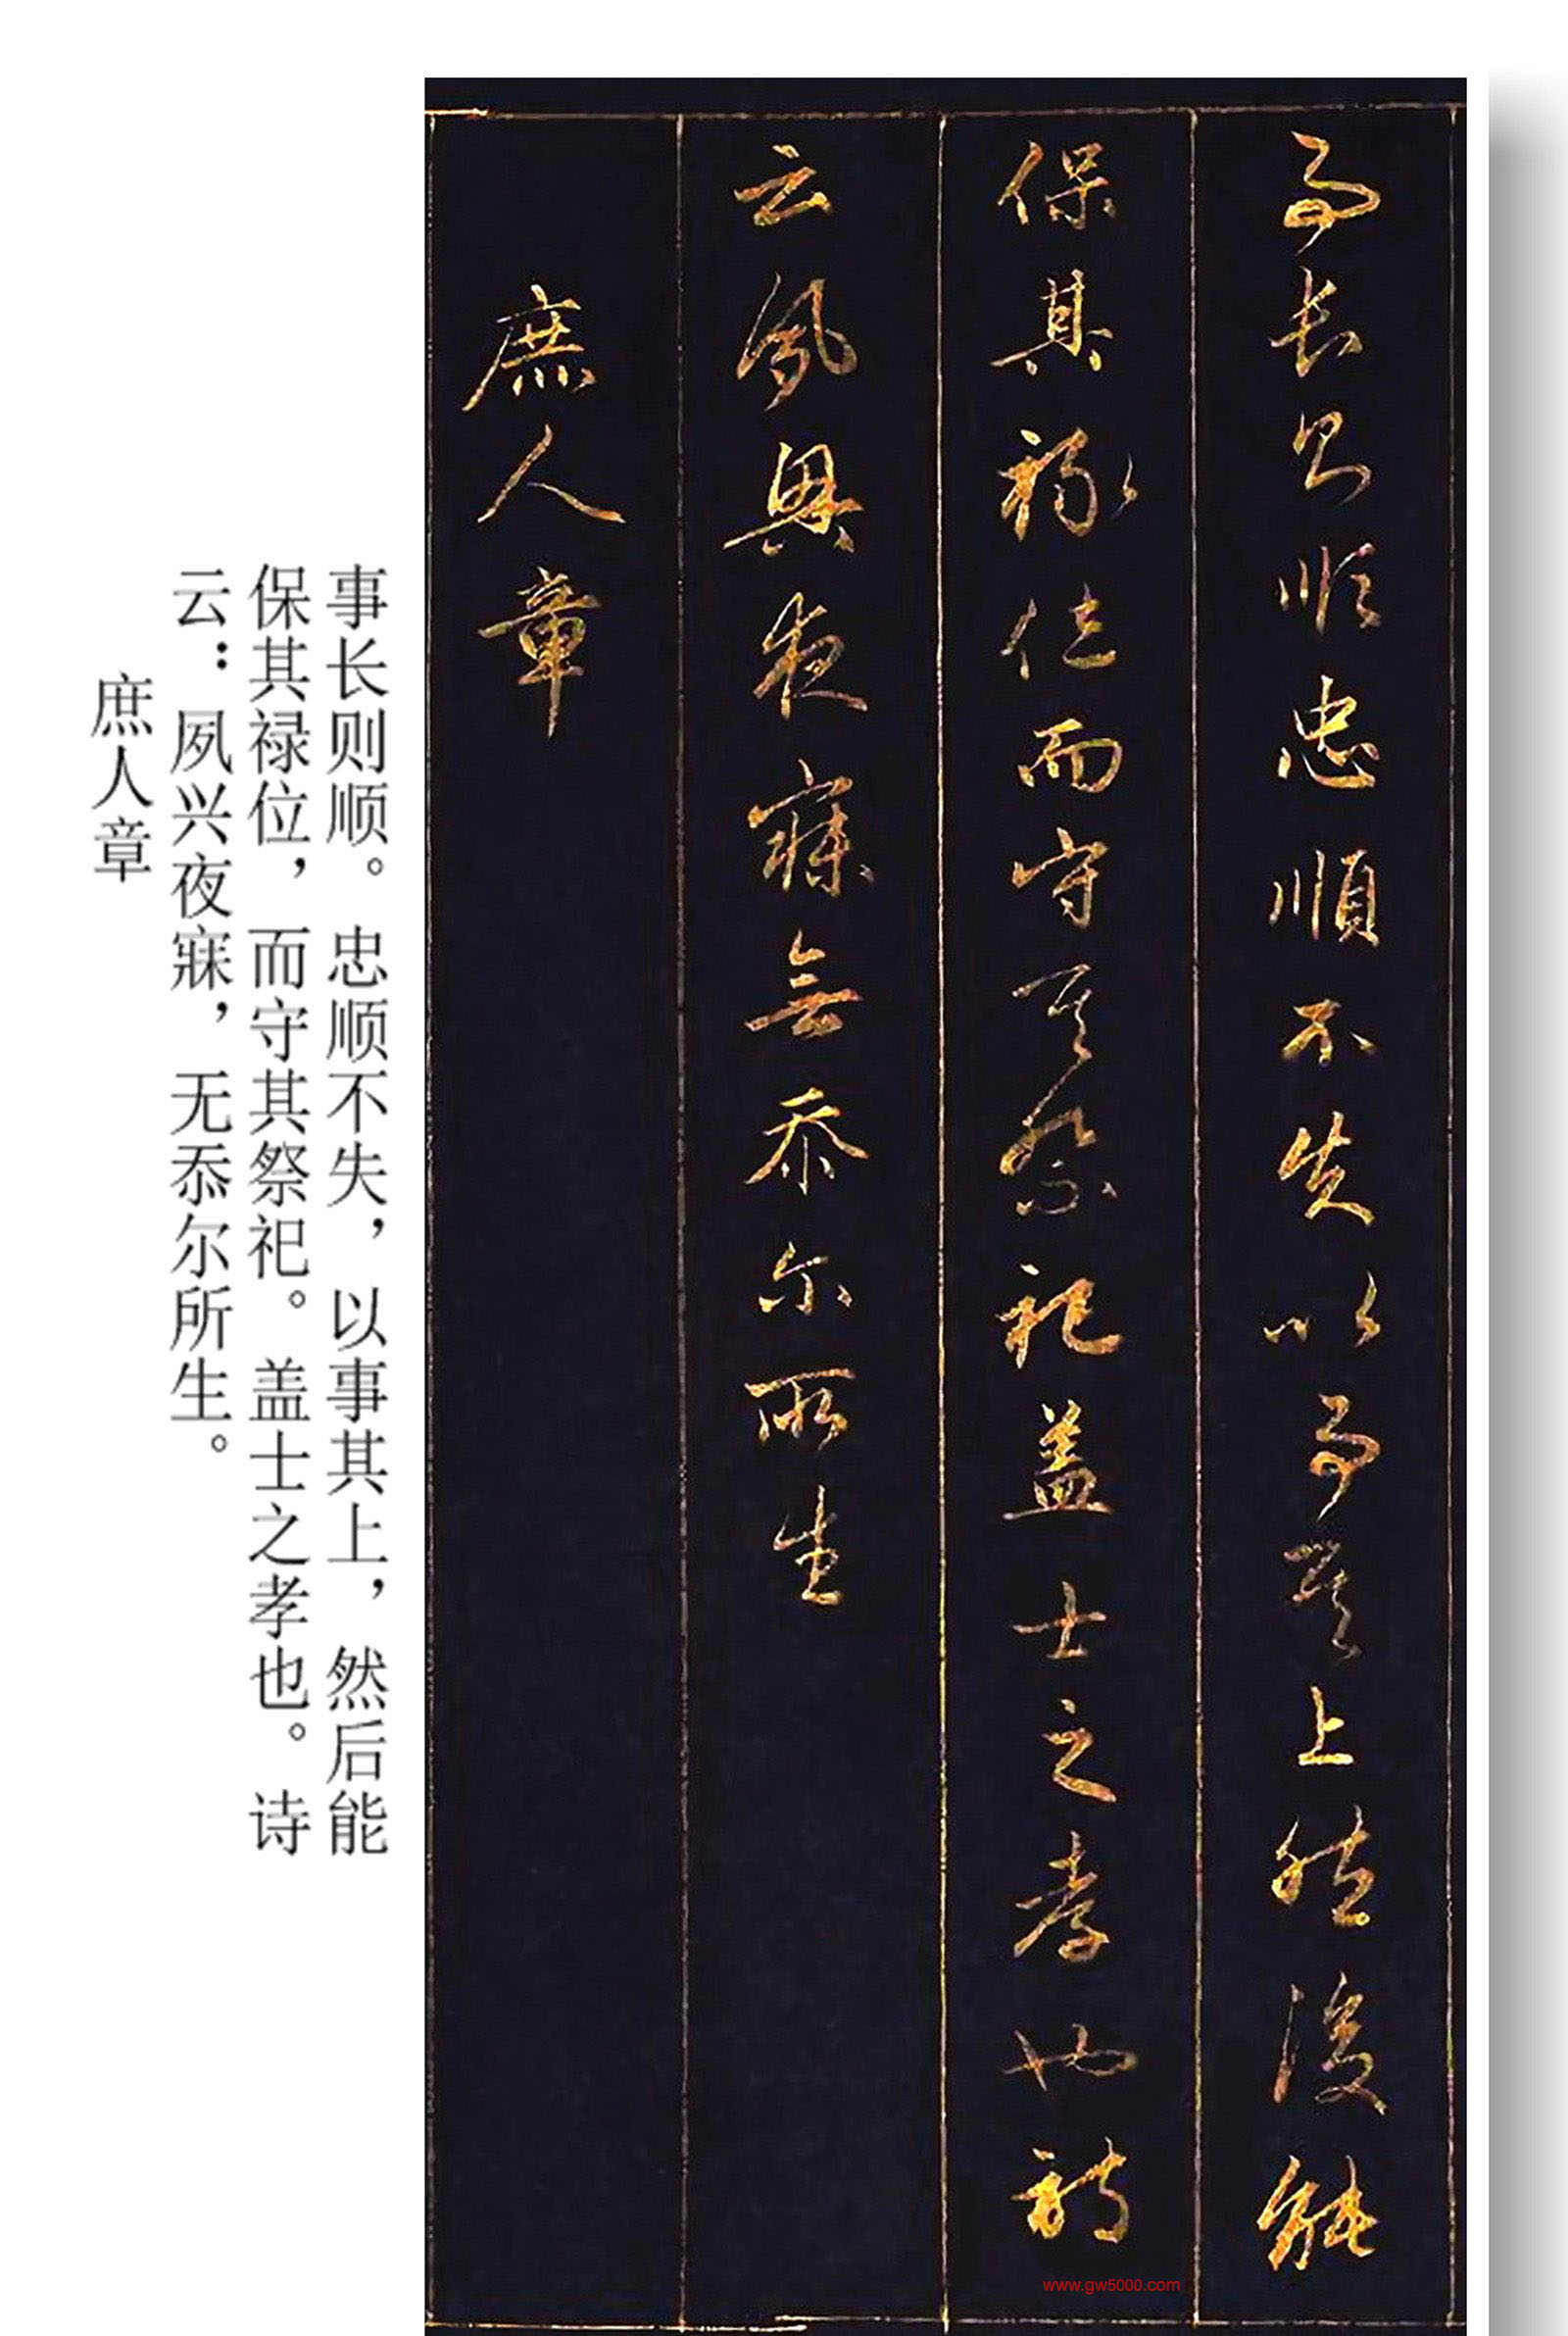 事长则順忠順不失以事其上然後能
保其祿位而守其祭祀盖士之孝也詩
云夙興夜寐無忝尔所生
庶人章
事长则顺。忠顺不失，以事其上，然后能
保其禄位，而守其祭祀。盖士之孝也。诗
云：夙兴夜寐，无忝尔所生。
庶人章
www.gw5000.com